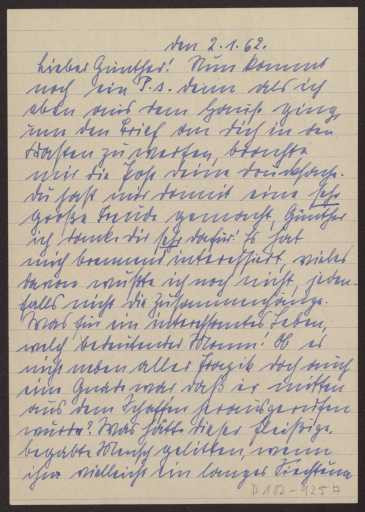 den 2.1.62.
Lieber Günther! Nun kommt
noch ein P.s. denn als ich
eben aus dem Hause ging,
um den Brief an dich in den
Kasten zu werfen, brachte
mir die Post deine Drucksache.
Du hast mir damit eine sehr
große Freude gemacht, Günther
ich danke dir sehr dafür! Es hat
mich brennend interessiert, vieles
davon wußte ich noch nicht, jeden-
falls nicht die Zusammenhänge.
Was für ein interessantes Leben,
welch bedeutender Mann! Ob es
nicht neben aller Tragik doch auch
eine Gnade war daß er mitten
aus dem Schaffen herausgerufen
wurde? Was hätte dieser fleißige
begabte Mensch gelitten, wenn
ihm vielleicht ein langes Siechtum
D 183-925